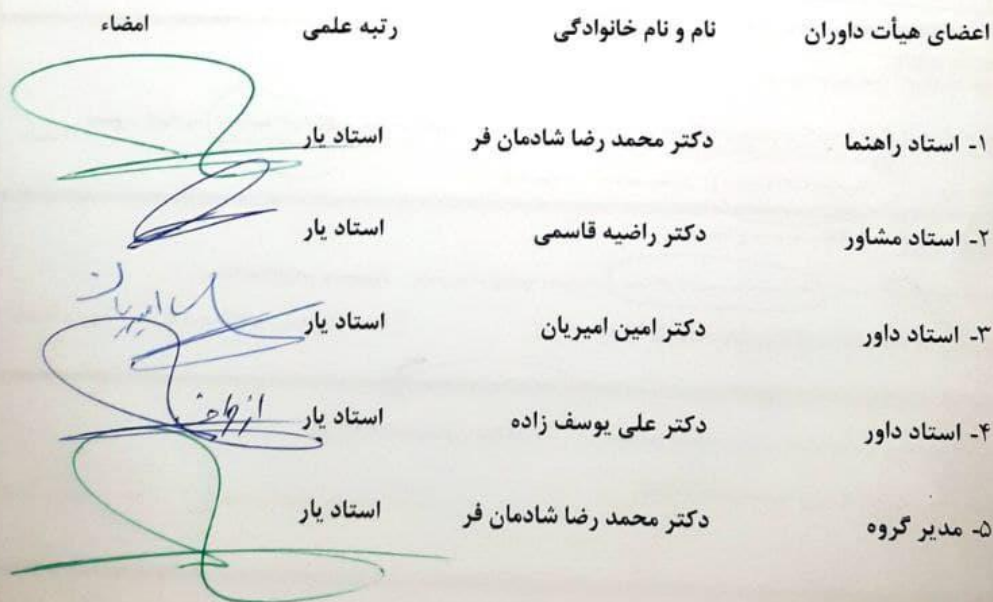 اعضای هیأت داوران نام و نام خانوادگی رتبه علمی امضاء
۱- استاد راهنما دکتر محمد رضا شادمان فر استاد یار
۲- استاد مشاور دکتر راضیه قاسمی استاد یار
۳- استاد داور دکتر امین امیریان استاد یار امیریان
۴- استاد داور دکتر علی یوسف زاده استاد یار از طرف
۵- مدیر گروه دکتر محمد رضا شادمان فر استاد یار